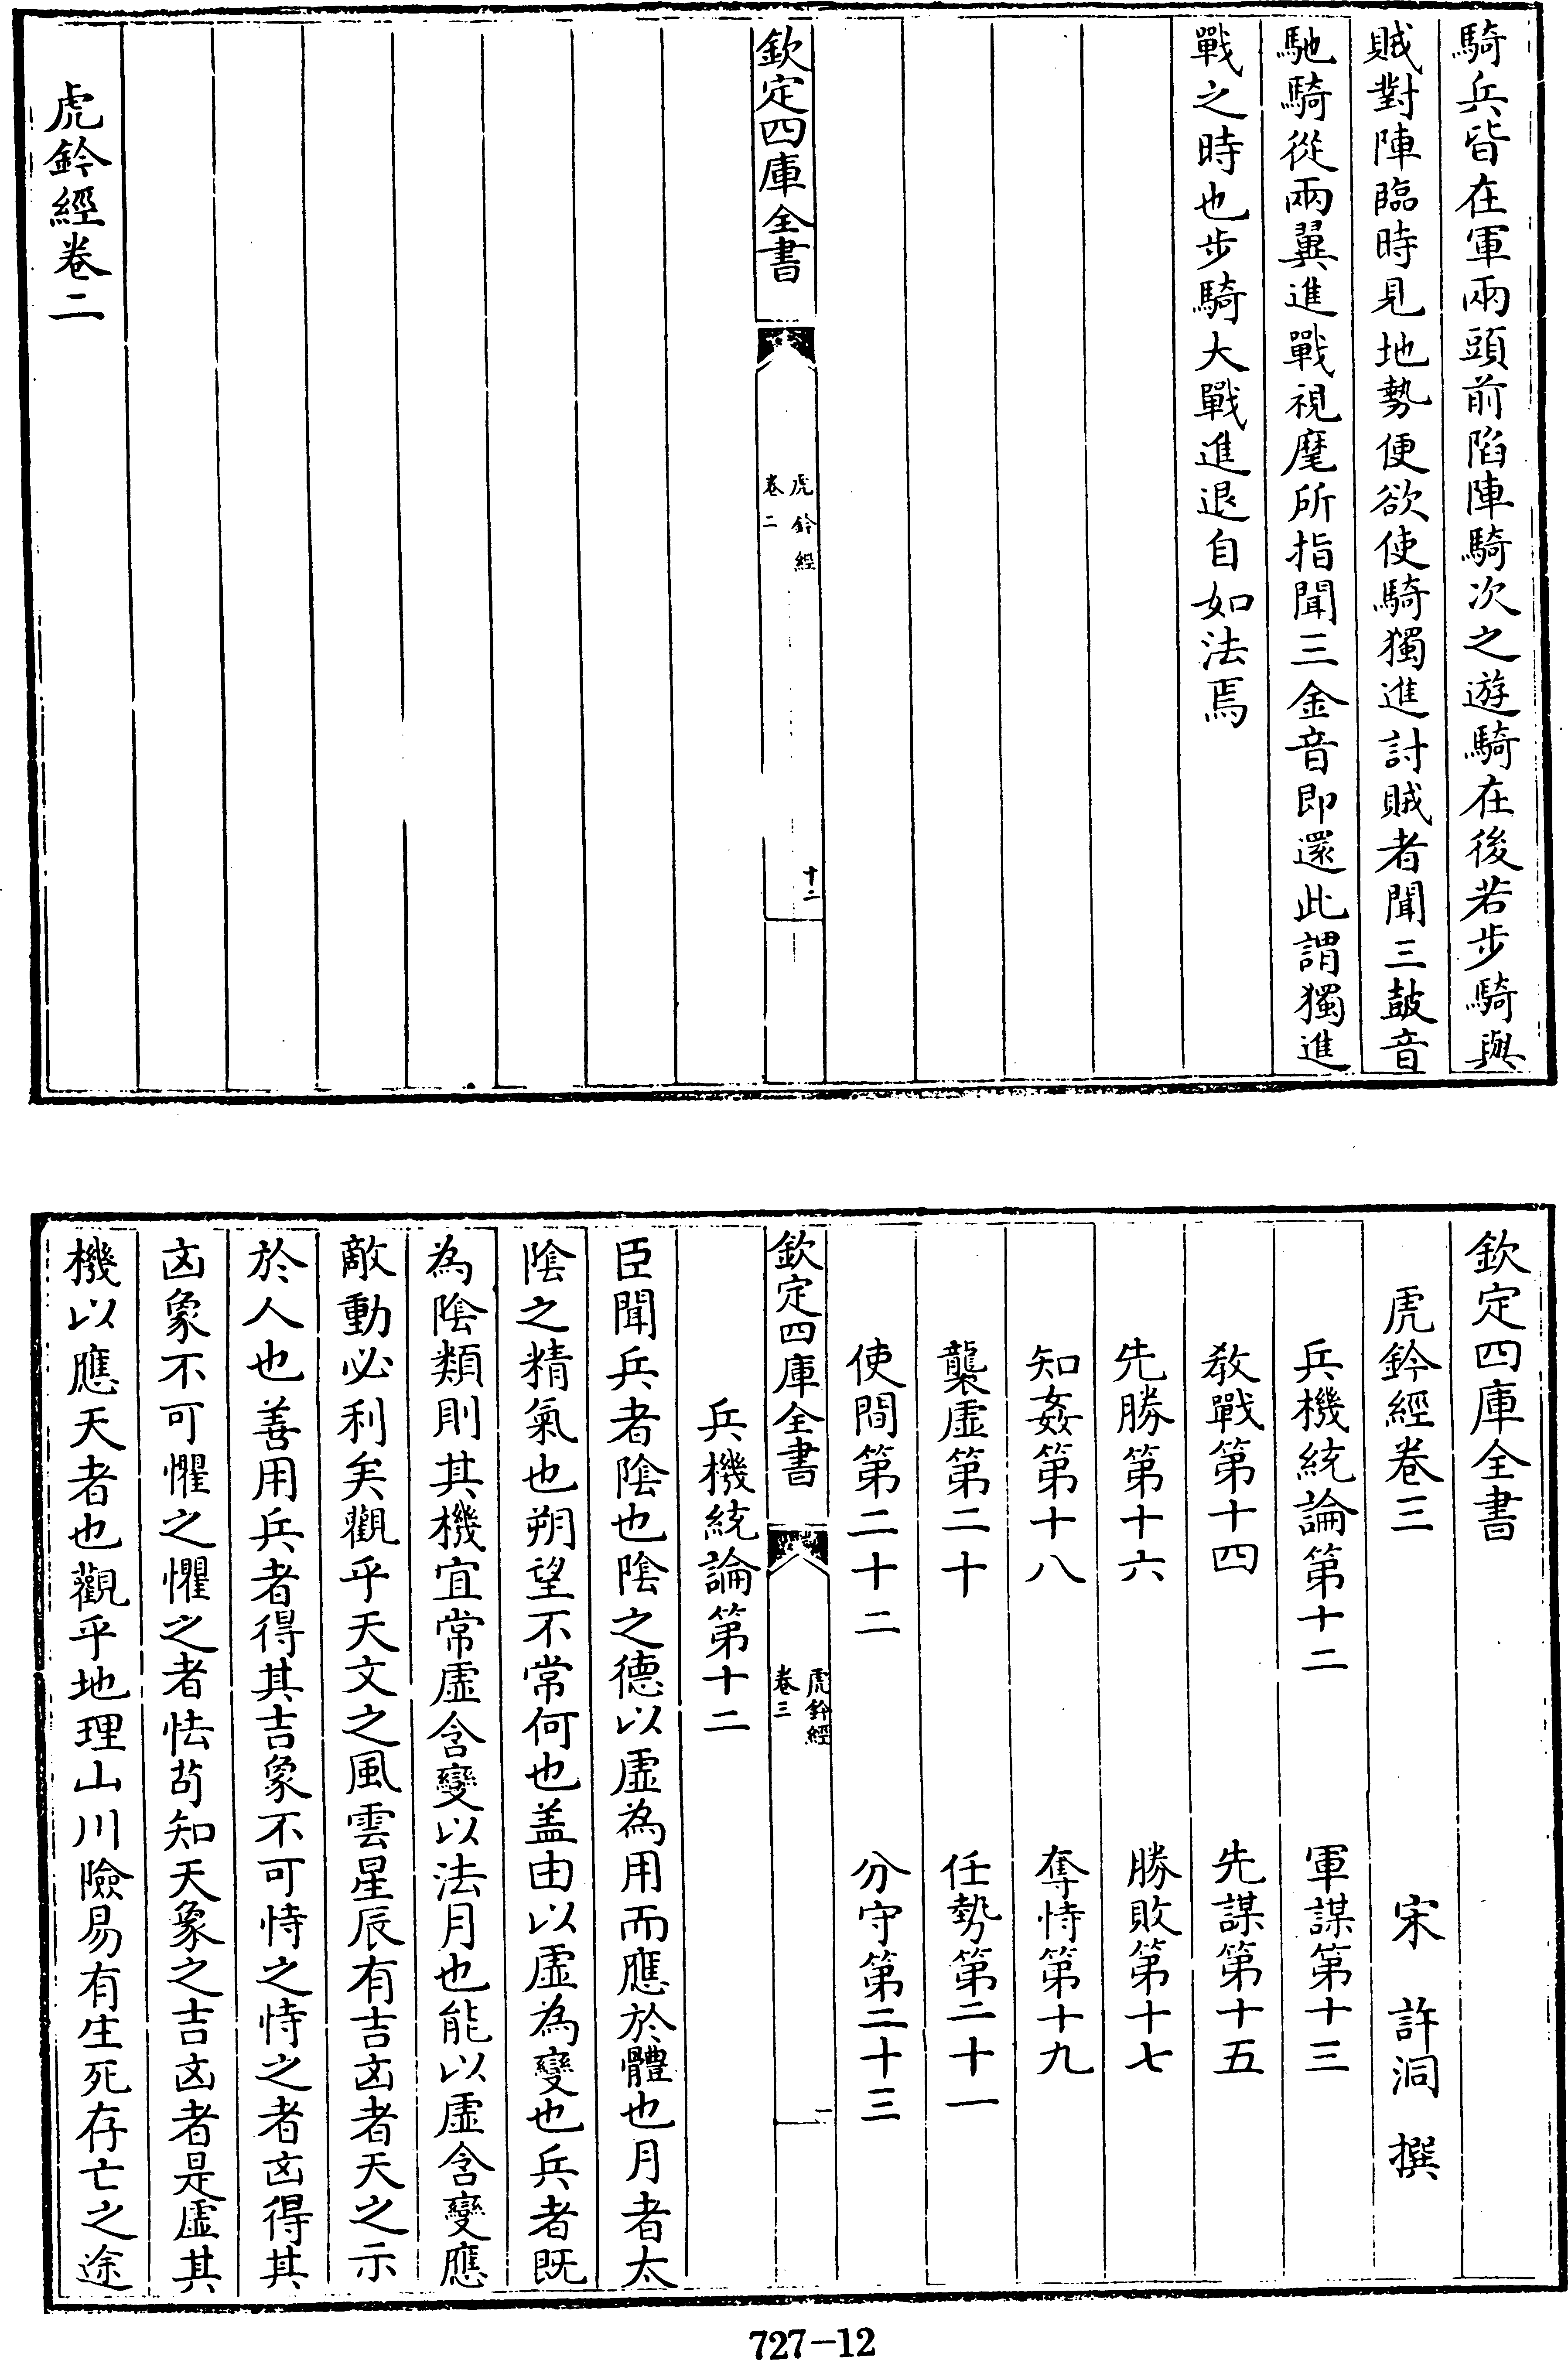 騎兵皆在軍兩頭前陷陣騎次之遊騎在後若步騎與
賊對陣臨時見地勢便欲使騎獨進討賊者聞三鼓音
馳騎從兩翼進戰視麾所指聞三金音即還此謂獨進
戰之時也步騎大戰進退自如法焉
欽定四庫全書
虎鈐經
卷二
十二
虎鈐經卷二
欽定四庫全書
虎鈐經卷三 宋 許洞 撰
兵機統論第十二 軍謀第十三
教戰第十四 先謀第十五
先勝第十六 勝敗第十七
知姦第十八 奪恃第十九
襲虛第二十 任勢第二十一
使間第二十二 分守第二十三
欽定四庫全書
虎鈐經
卷三
一
兵機統論第十二
臣聞兵者陰也陰之德以虛為用而應於體也月者太
陰之精氣也朔望不常何也盖由以虛為變也兵者既
為陰類則其機宜常虛含變以法月也能以虛含變應
敵動必利矣觀乎天文之風雲星辰有吉凶者天之示
於人也善用兵者得其吉象不可恃之恃之者凶得其
凶象不可懼之懼之者怯茍知天象之吉凶者是虛其
機以應天者也觀乎地理山川險易有生死存亡之途
727-12